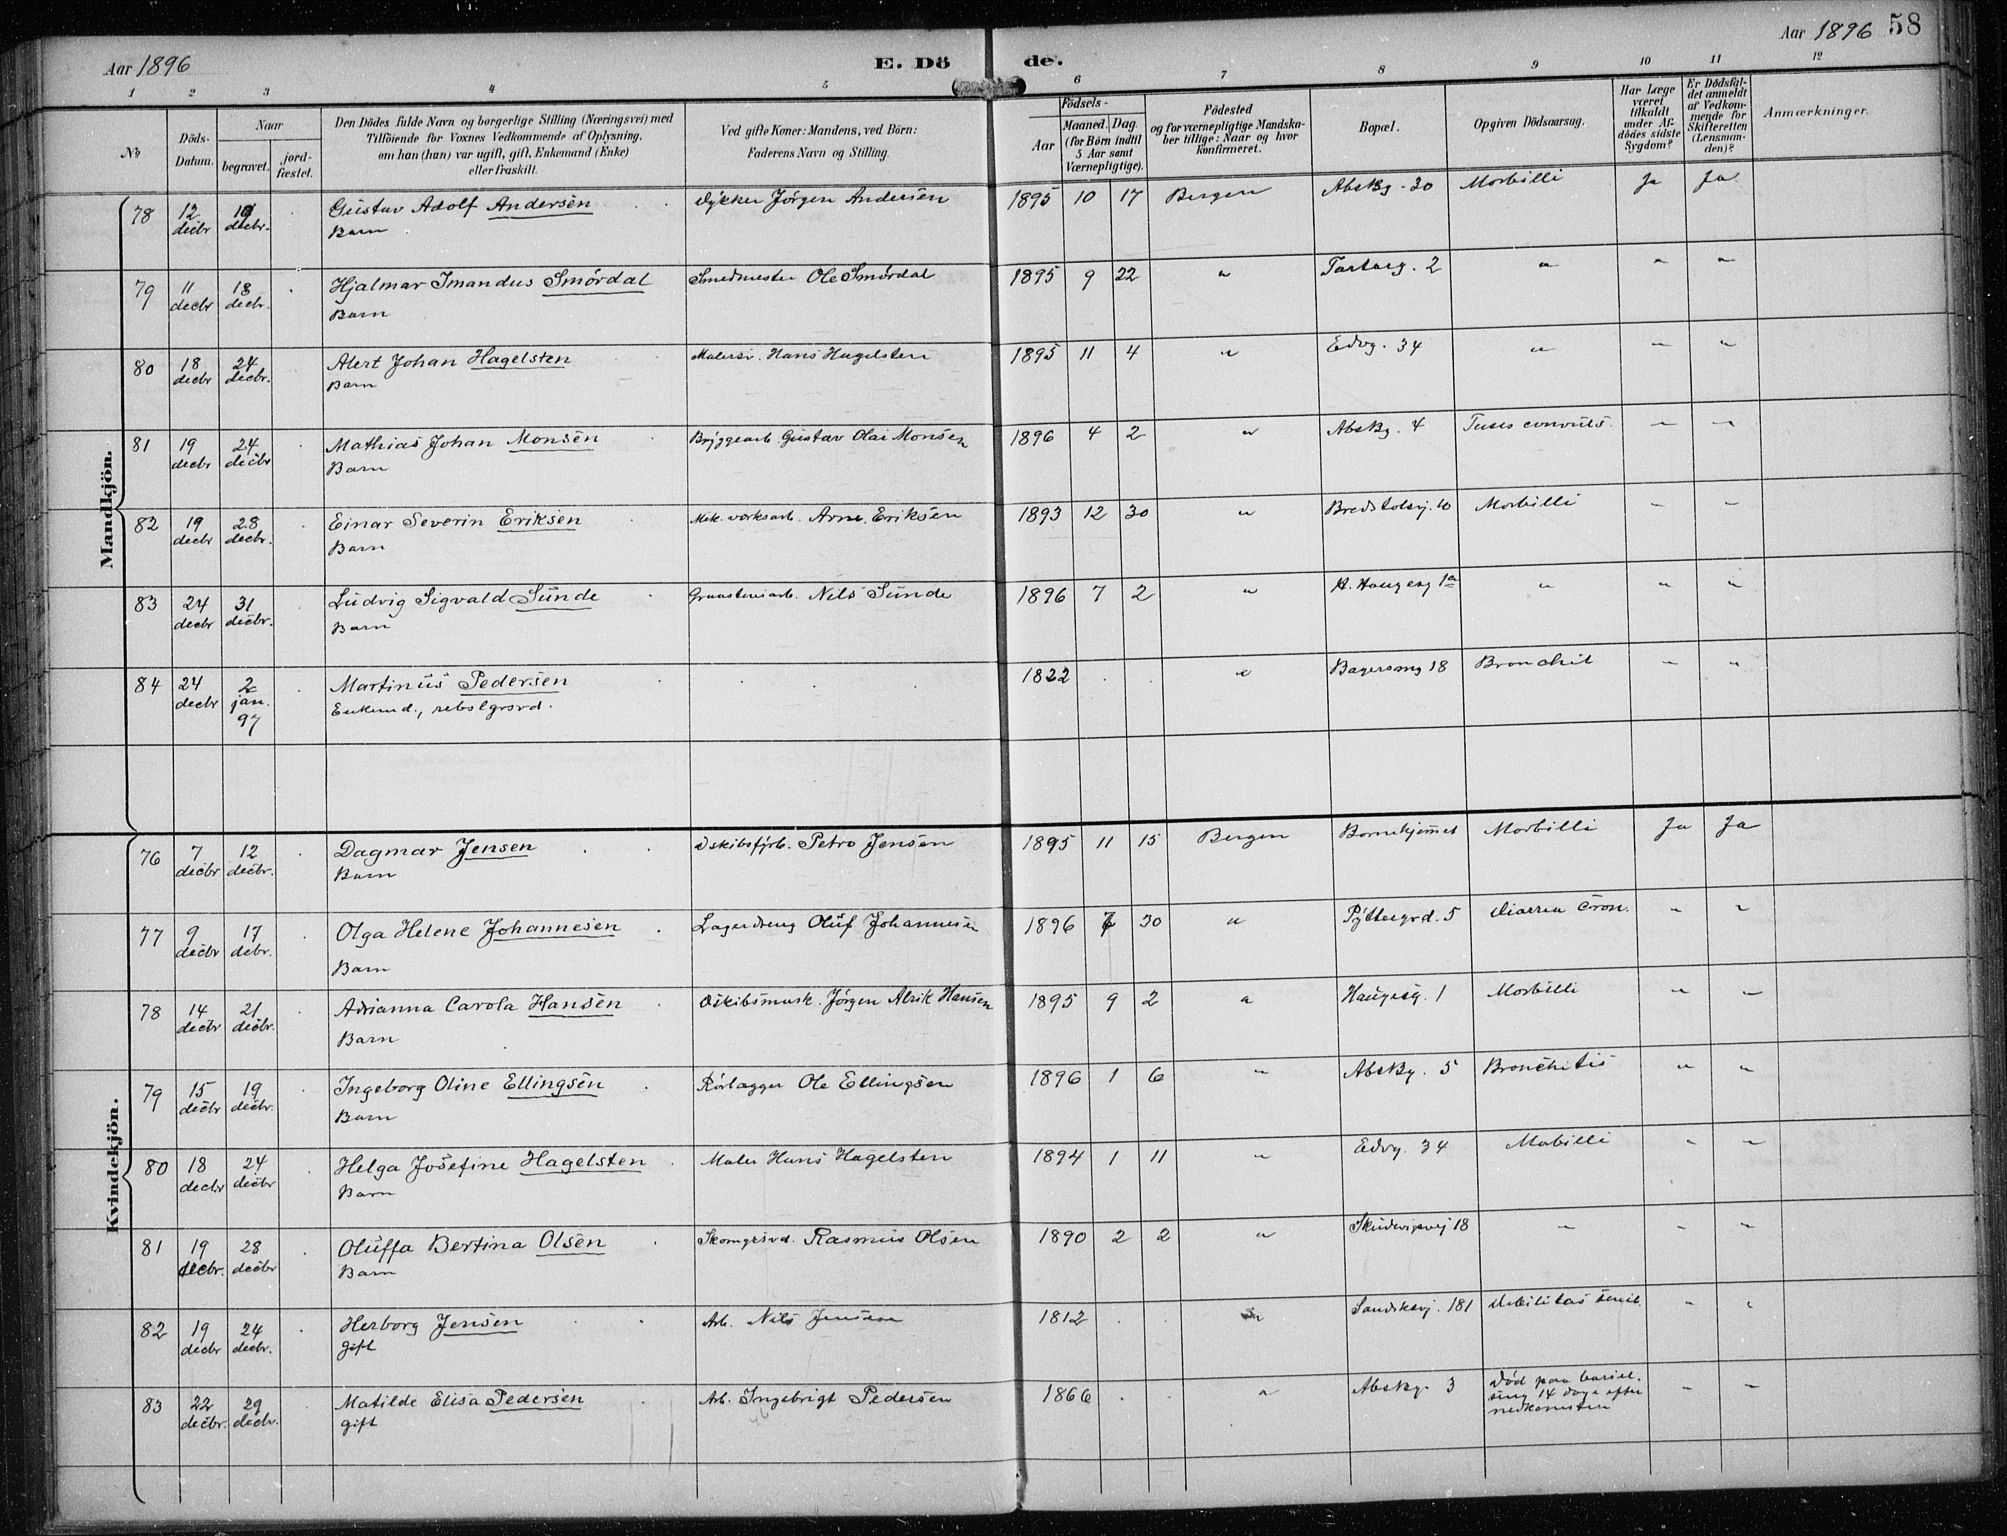 Aar 1896
E. Dö
de.
Aar 1896
58
1 2 3 4 5 6 7 8 9 10 11 12
No
Döds-Datum.
Naar
begravet.
jord-fæstet.
Den Dödes fulde Navn og borgerlige Stilling (Næringsvei) med
Tilföiende for Voxnes Vedkommende af Oplysning,
om han (hun) var ugift, gift, Enkemand (Enke)
eller fraskilt.
Ved gifte Koner: Mandens, ved Börn:
Faderens Navn og Stilling.
Födsels-
Aar
Maaned. Dag.
(for Börn indtil
5 Aar samt
Værnepligtige).
Födested
og for værnepligtige Mandska-
ber tillige: Naar og hvor
konfirmeret.
Bopæl.
Opgiven Dödsaarsag.
Har Læge
været
tilkaldt
under Af-
dödes sidste
Sygdom?
Er Dödsfal-
det anmeldt
af Vedkom-
mende for
Skifteretten
(Lensman-
den)?
Anmærkninger.
Mandkjön.
78 12 decbr decbr. Gustav Adolf Andersen Dykker Jørgen Andersen 1895 10 17 Bergen Absbg. 30 Morbilli Ja Ja
Barn
79 11 decbr 18 decbr. Hjalmar Imandus Smördal Smedmester Ole Smördal 1895 9 22 " Tartarg. 2 " " "
Barn
80 18 decbr 24 decbr. Alert Johan Hagelsten Malersv. Hans Hagelsten 1895 11 4 " Edvg. 34 " " "
Barn
81 19 decbr 24 decbr Mathias Johan Monsen Bryggearb Gustav Olai Monsen 1896 4 2 " Absbg. 4 Tusis convuls. " "
Barn
82 19 decbr 28 decbr. Einar Severin Eriksen Mek. værksarb. Arne Eriksen 1893 12 30 " Bredstolsvj. 10 Morbilli " "
Barn
83 24 decbr 31 decbr. Ludvig Sigvald Sunde Graastensarb. Nils Sunde 1896 7 2 " H. Haugesg 1a " " "
Barn
84 24 decbr 2 jan. 97 Martinus Pedersen 1822 " Bagersmg 18 Bronchit " "
Enkemd., rebslgrsvd.
Kvindekjön.
76 7 decbr 12 decbr. Dagmar Jensen Dskibsfyrb. Petro Jensen 1895 11 15 Bergen Bornehjemmet Morbilli Ja Ja
Barn
77 9 decbr 17 debr. Olga Helene Johannesen Lagerdreng Oluf Johannesen 1896 30 " Pyttergrd. 5 Diarrea Cron. " "
Barn
78 14 decbr 21 decbr. Adrianna Carola Hansen Dskibsmask. Jørgen Alrik Hansen 1895 9 2 " Haugesg. 1 Morbilli " "
Barn
79 15 decbr 19 decbr. Ingeborg Oline Ellingsen Rörlægger Ole Ellingsen 1896 1 6 " Absbg. 5 Bronchitis " "
Barn
80 18 decbr 24 decbr Helga Josefine Hagelsten Maler Hans Hagelsten 1894 1 11 " Edvg. 34 Mobilli " "
Barn
81 19 decbr. 28 decbr Oluffa Bertina Olsen Skomgrsvd. Rasmus Olsen 1890 2 2 " Skudevigsvej 18 " " "
Barn
82 19 decbr 24 decbr. Herborg Jensen Arb. Nils Jensen 1812 " Sandsksvj. 181 Debilitas senil. " "
gift
83 22 decbr. 29 decbr. Matilde Elisa Pedersen Arb. Ingebrigt Pedersen 1866 " Absbg. 3 Død paa barsel-
gift
seng 14 dage efter
nedkomsten " "